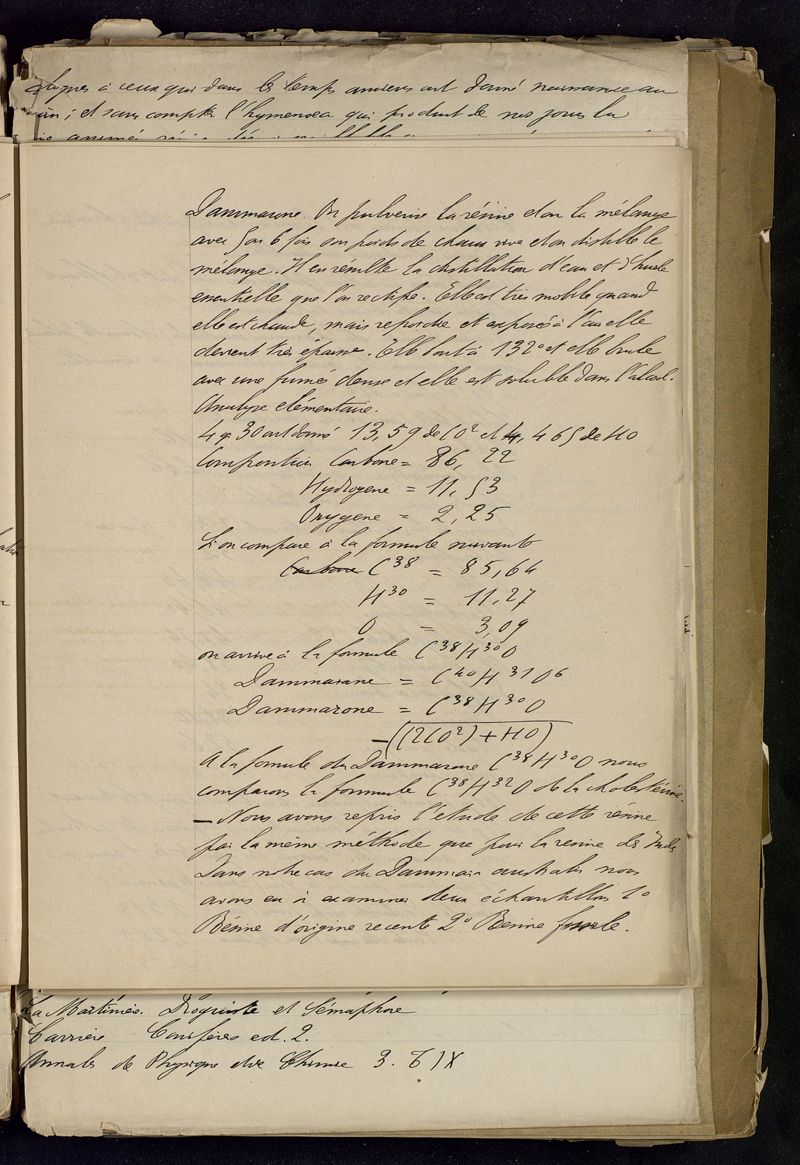 à ceux qui dans les temps anciens ont donné naissance au
; et sans compter l'hymenoea qui produit de nos jours la
Dammarone. On pulverise la résine et on la mélange
avec 5 ou 6 fois son poids de chaux vive et on distille le
mélange. Il en résulte la distillation d'eau et d'huile
essentielle que l'on rectifie. Elle est très mobile quand
elle est chaude, mais refroidie et exposée à l'air elle
devient très épaisse. Elle bout à 132° et elle brule
avec une fumée dense et elle est soluble dans l'alcool.
Analyse élémentaire.
4 g. 30 ont donné 13,59 de CO² et 4,465 de HO
Composition Carbone = 86,22
Hydrogene = 11,53
Oxygene = 2,25
Si on compare à la formule suivante
Carbone C³⁸ = 85,64
H³⁰ = 11,27
O = 3,09
on arrive à la formule C³⁸H³⁰O
Dammarane = C⁴⁰H³¹O⁶
Dammarone = C³⁸H³⁰O
– ((2CO²) + HO)
A la formule du Dammarone C³⁸H³⁰O nous
comparons la formule C³⁸H³²O de la cholestérine.
— Nous avons repris l'étude de cette résine
par la même méthode que pour la résine des Indes
Dans notre cas du Dammara australis nous
avons eu à examiner deux échantillons 1°
Résine d'origine recente 2° Resine fossile.
La Martinière. Droguiste et Sémaphore
Carrière Conifères ed. 2.
Annales de Physique et de Chimie 3. T IX